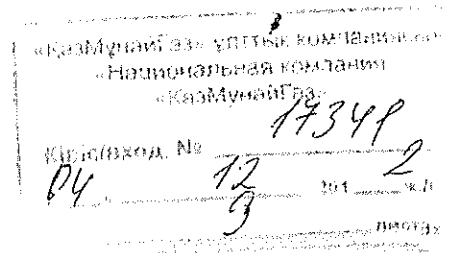 «ҚазМұнайГаз» ұлттық компаниясы
«Национальная компания
«КазМунайГаз»
Кіріс/вход. № 17341
04 12 201 2 ж./г.
3 листах